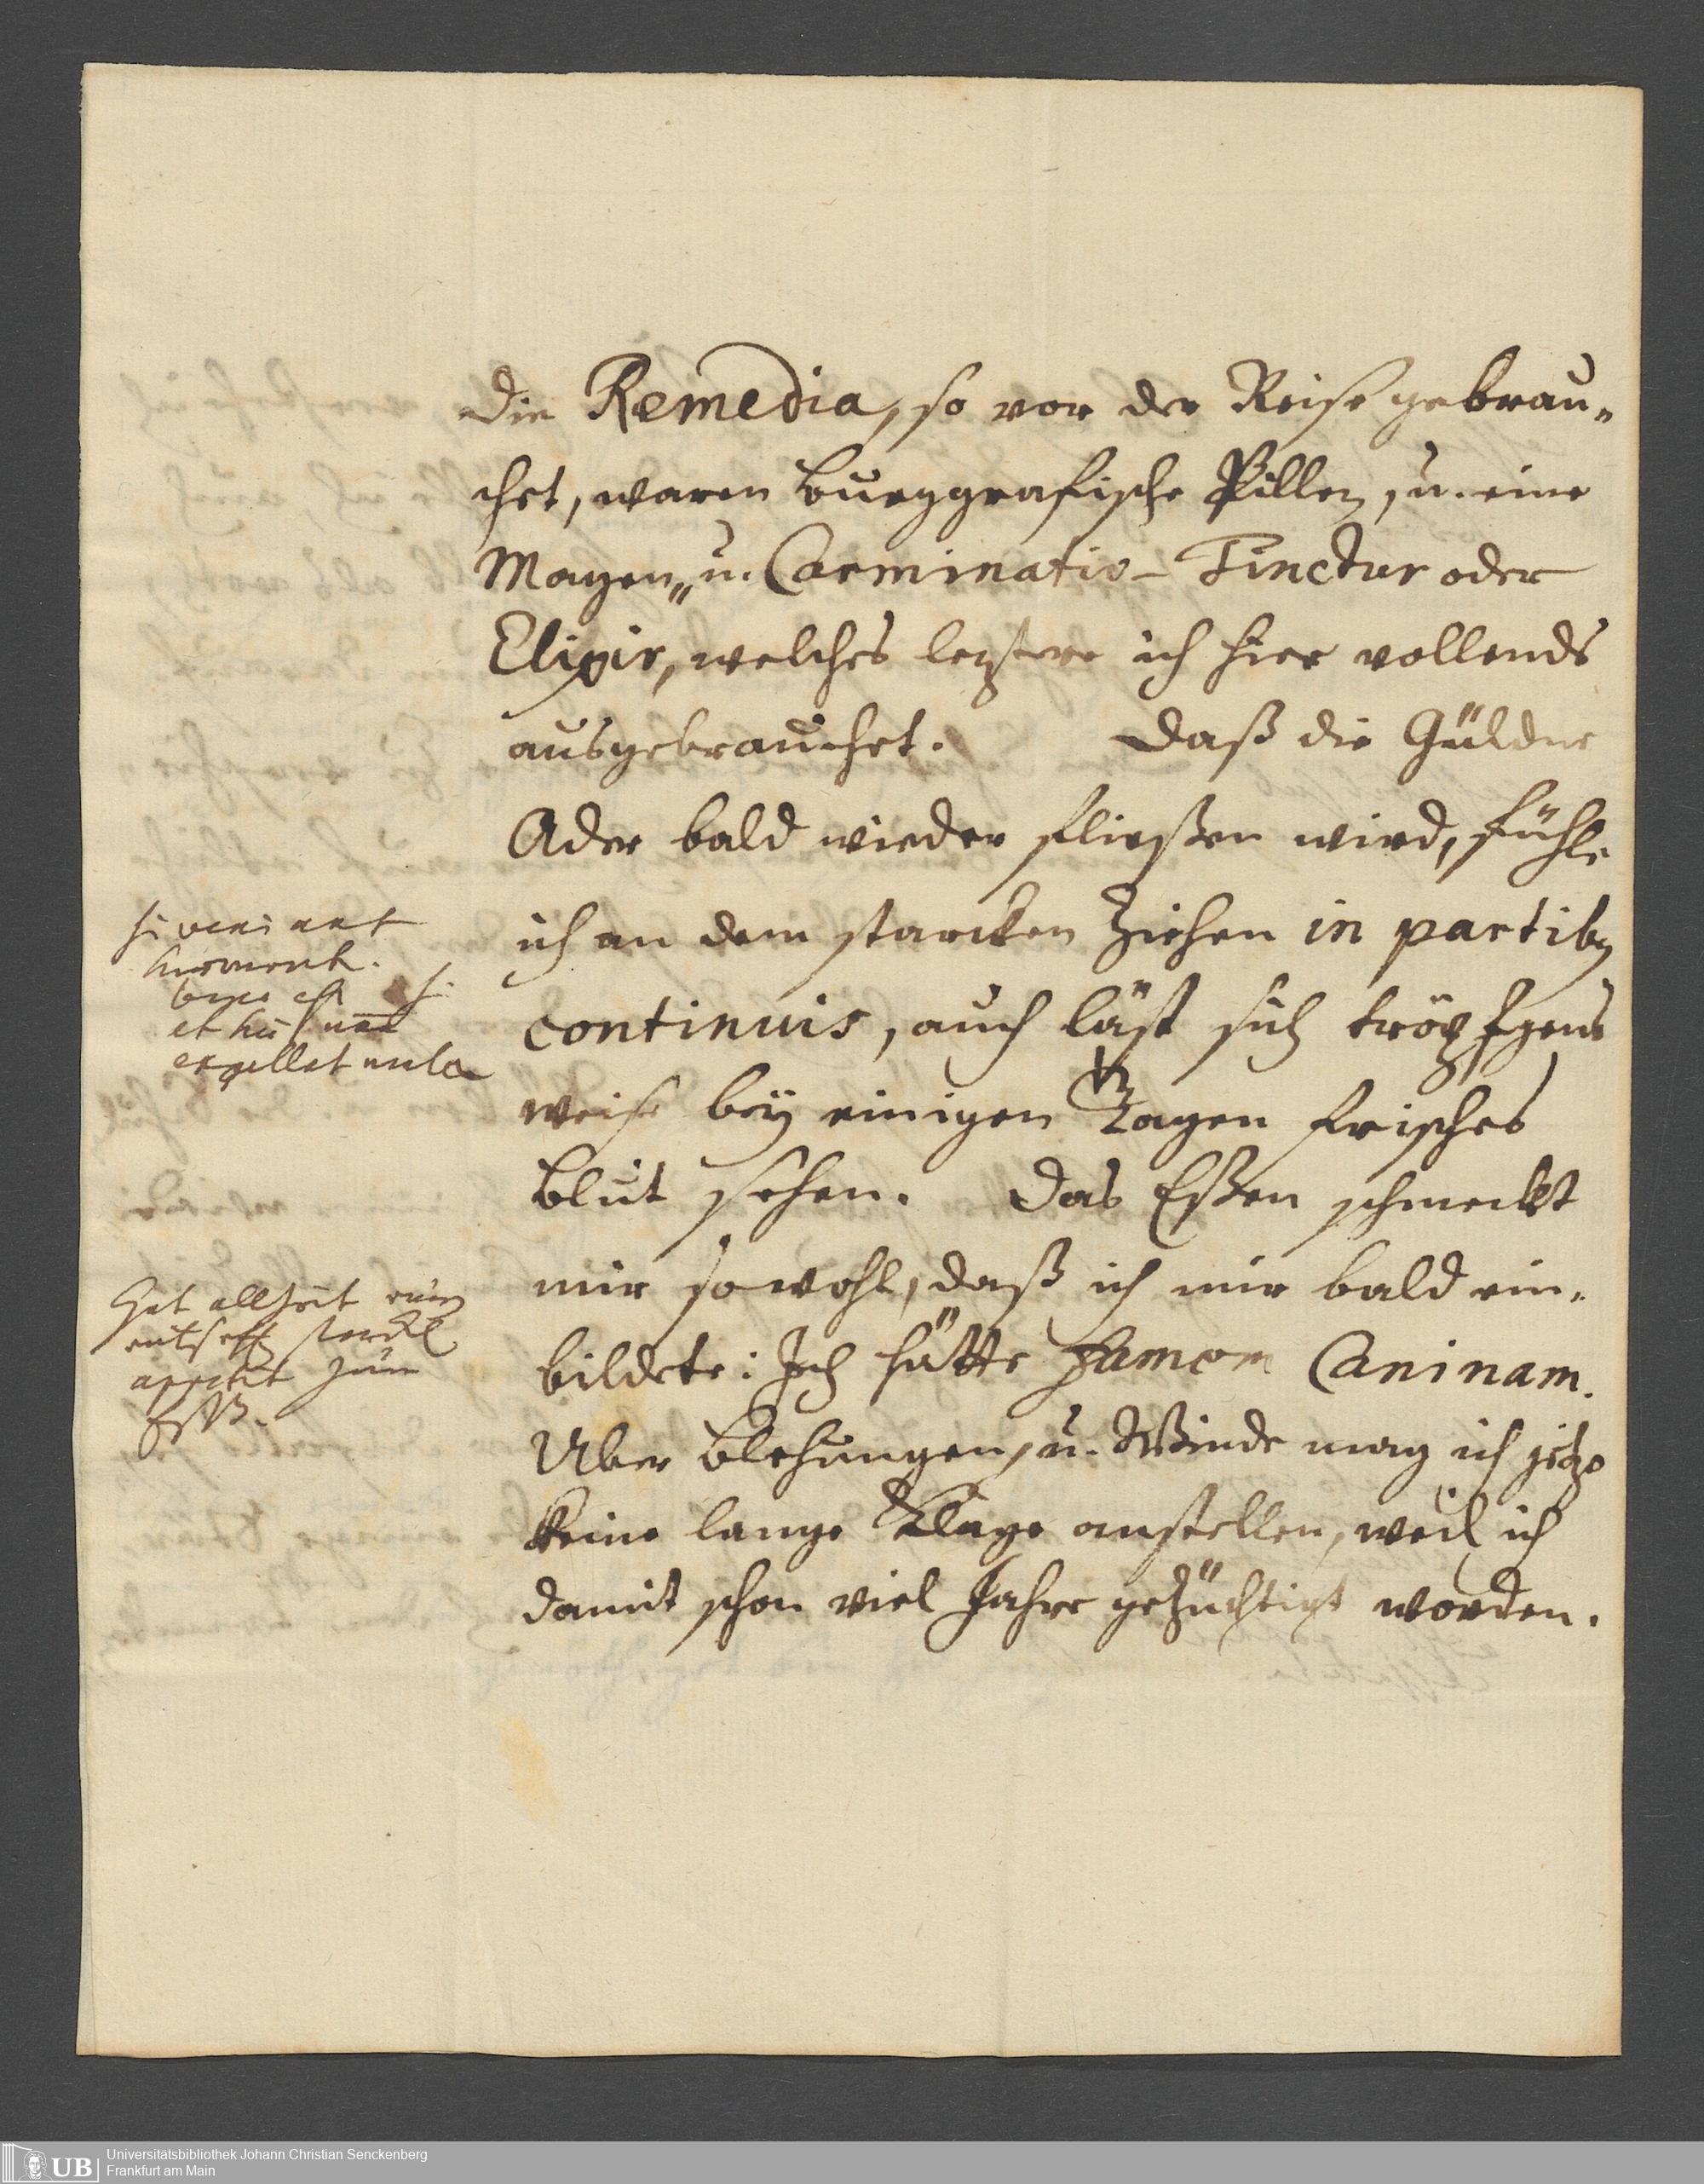 Die Remedia, so vor der Reise gebrau„
chet, waren burggrafische Pillen, u. eine
Magen„ u. Carminativ- Tinctur oder
Elixir, welches letztere ich hier vollends
ausgebrauchet. Daß die Güldne
Ader bald wieder fließen wird, fühle
ich an dem starcken Ziehen in partibq
continuis, auch läst sich tröpfgens
weise bey einigen Tagen frisches
Blut sehen. Das Eßen schmeckt
mir so wohl, daß ich mir bald ein„
bildete: Ich hätte Famem Caninam.
Uber Blehungen, u. Winde mag ich jetzo
keine lange Klage anstellen, weil ich
damit schon viel Jahre gezüchtigt worden.
si veniant
et
Hat allzeit ein
appetit zum
UB Universitätsbibliothek Johann Christian Senckenberg
Frankfurt am Main